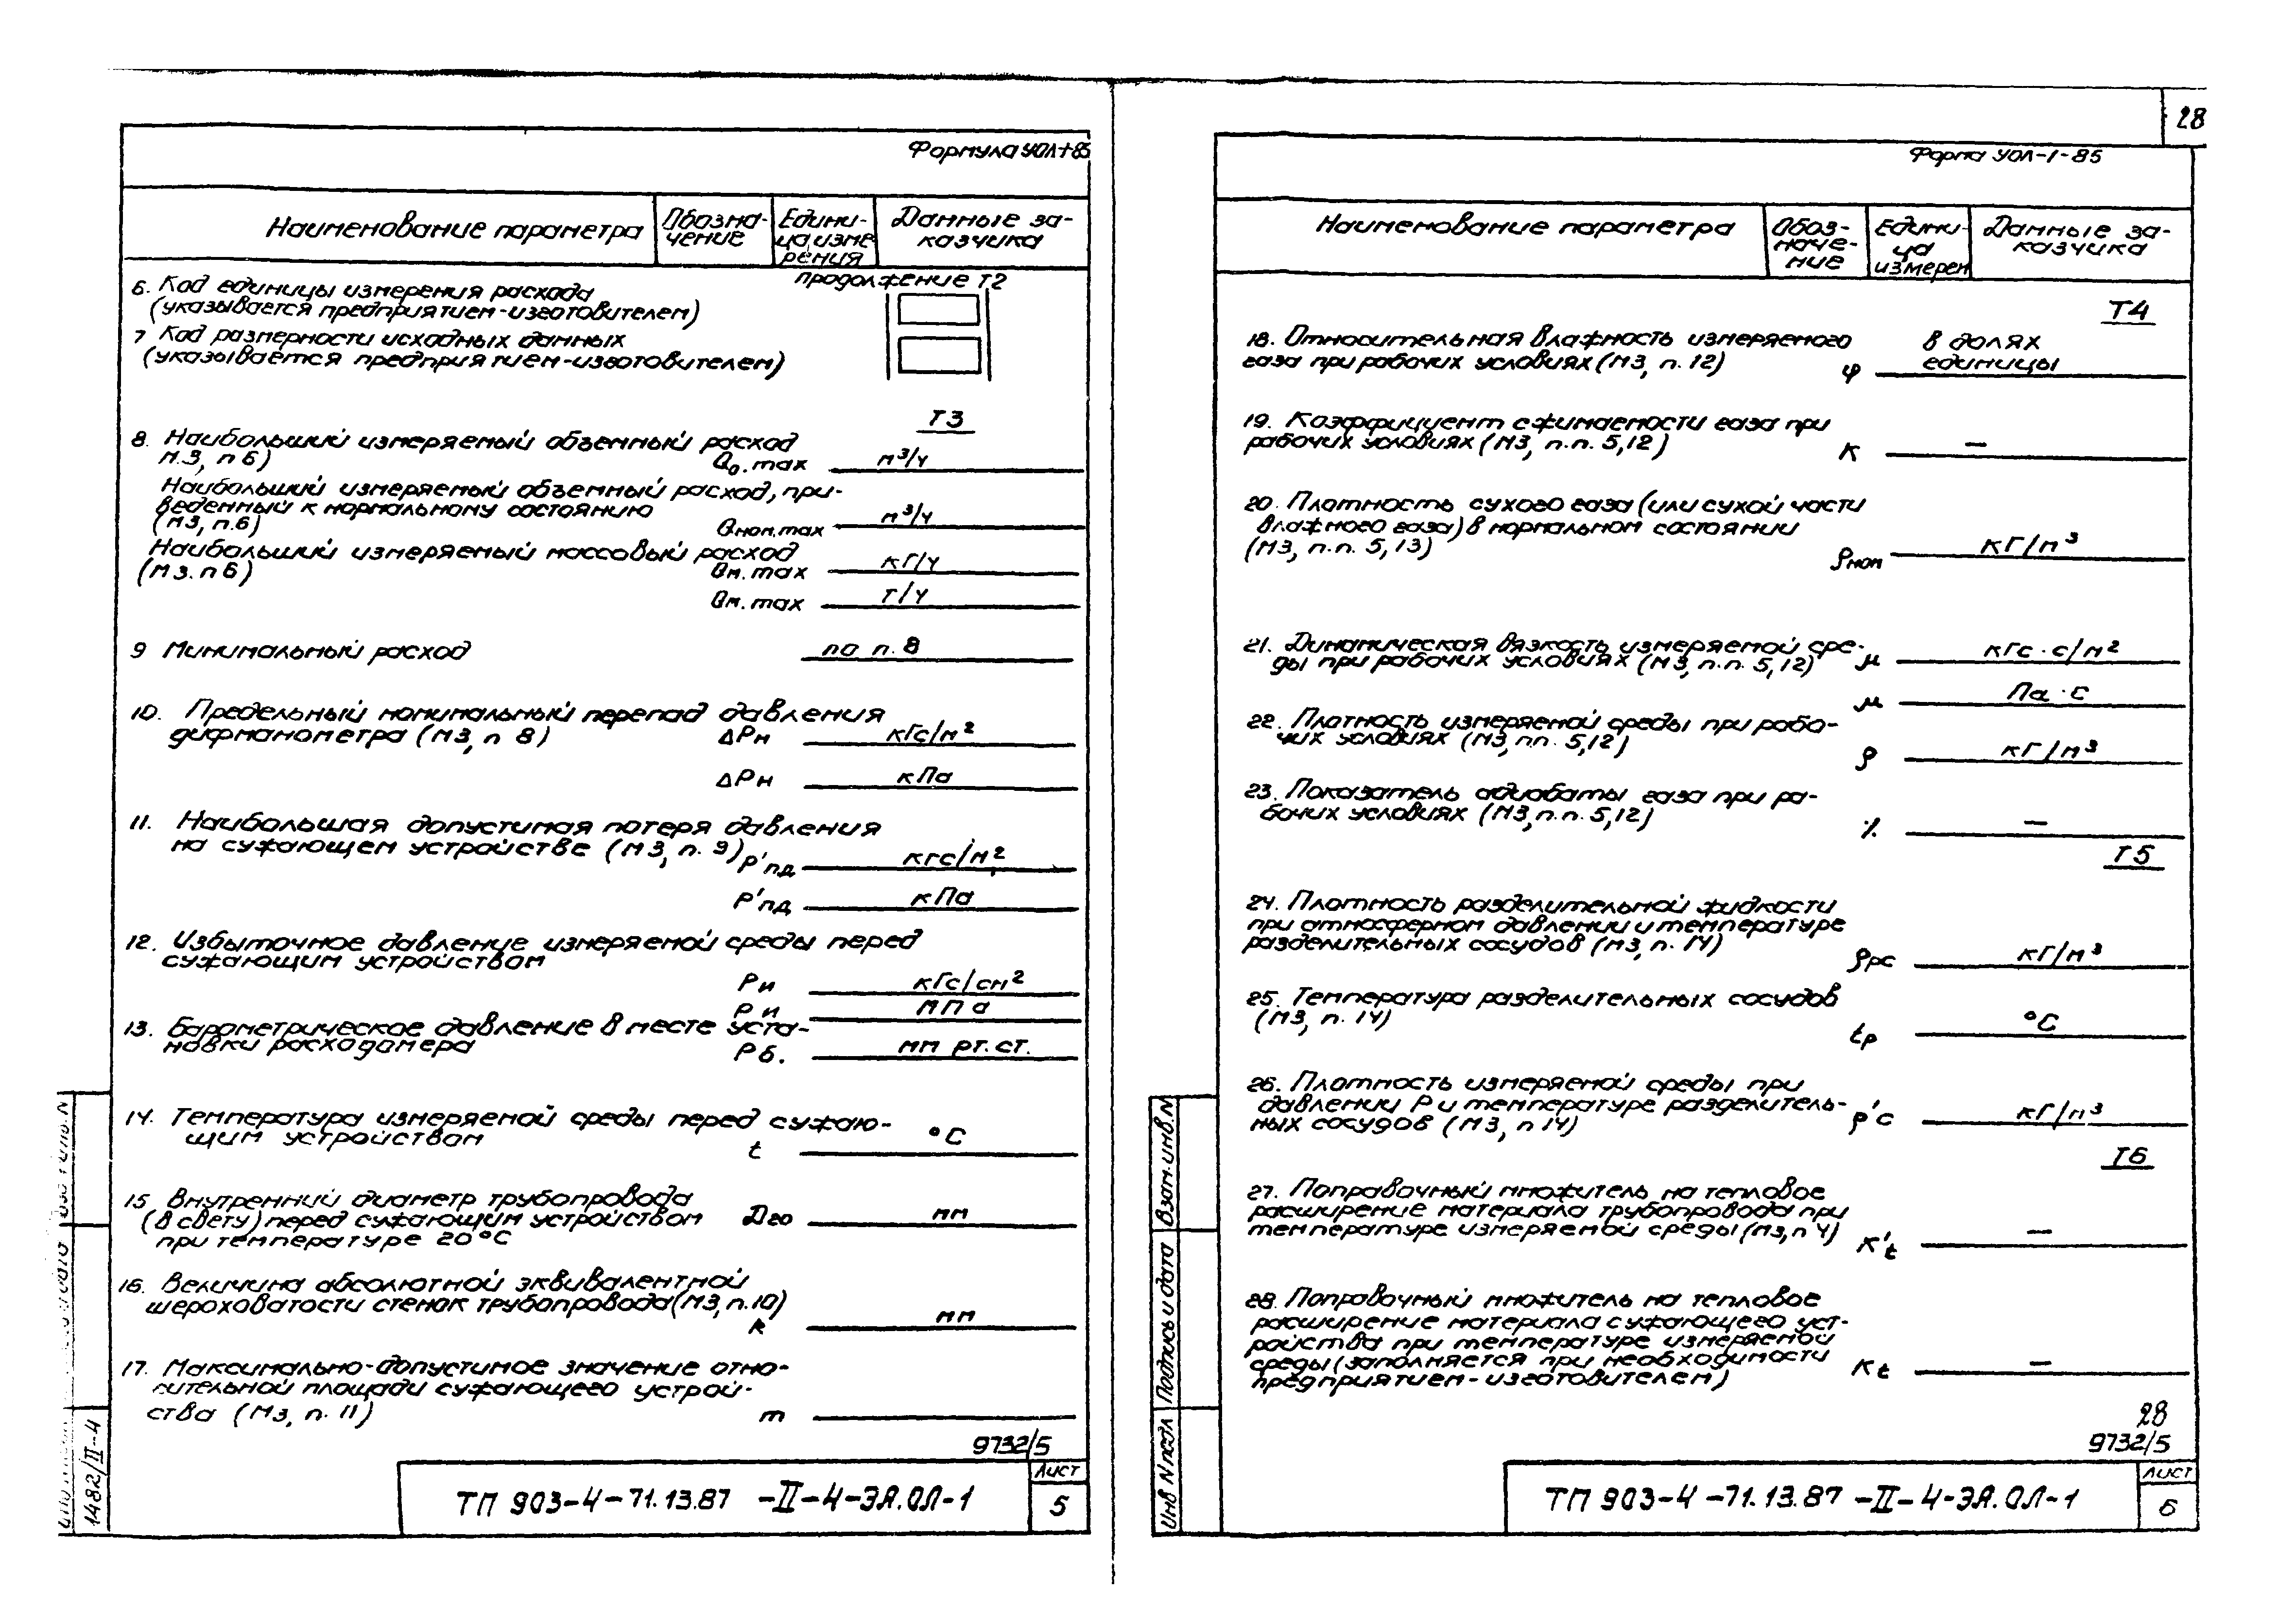 28
Формула УОЛ-1-85
Наименование параметра
Обозна-
чение
Едини-
ца изме
рения
Данные за-
казчика
продолжение Т2
6. Код единицы измерения расхода
(указывается предприятием-изготовителем)
7 Код размерности исходных данных
(указывается предприятием-изготовителем)
Т3
8. Наибольший измеряемый объемный расход
М.3, п 6) Qо.max м³/ч
Наибольший измеряемый объемный расход, при-
веденный к нормальному состоянию
(М3, п.6) Qном.max м³/ч
Наибольший измеряемый массовый расход
(М3. п 6) Qм.max кГ/ч
Qм.max т/ч
9 Минимальный расход по п. 8
10. Предельный номинальный перепад давления
дифманометра (М3, п 8) ΔРн кГс/м²
ΔРн кПа
11. Наибольшая допустимая потеря давления
на сужающем устройстве (М3, п. 9) Р'пд кгс/м²
Р'пд кПа
12. Избыточное давление измеряемой среды перед
сужающим устройством
Ри кГс/см²
Ри МПа
13. Барометрическое давление в месте уста-
новки расходомера Рб. мм рт.ст.
14. Температура измеряемой среды перед сужаю-
щим устройством t °С
15 Внутренний диаметр трубопровода
(в свету) перед сужающим устройством D20 мм
при температуре 20°С
16. Величина абсолютной эквивалентной
шероховатости стенок трубопровода (М3, п.10)
k мм
17. Максимально-допустимое значение отно-
сительной площади сужающего устрой-
ства (М3, п. 11) m
9732/5
ТП 903-4-71.13.87 -II-4-ЭА.ОЛ-1
Лист
5
1482/II-4
Форма УОЛ-1-85
Наименование параметра
Обоз-
наче-
ние
Едини-
ца
измерен
Данные за-
казчика
Т4
18. Относительная влажность измеряемого в долях
газа при рабочих условиях (М3, п. 12) φ единицы
19. Коэффициент сжимаемости газа при
рабочих условиях (М3, п.п. 5,12) К —
20. Плотность сухого газа (или сухой части
влажного газа) в нормальном состоянии
(М3, п.п. 5,13) ρном кГ/м³
21. Динамическая вязкость измеряемой сре-
ды при рабочих условиях (М3, п.п. 5,12) μ кГс·с/м²
μ Па·С
22. Плотность измеряемой среды при рабо-
чих условиях (М3, п.п. 5,12) ρ кГ/м³
23. Показатель адиабаты газа при ра-
бочих условиях (М3, п.п. 5,12) χ —
Т5
24. Плотность разделительной жидкости
при атмосферном давлении и температуре
разделительных сосудов (М3, п. 14) ρрс кГ/м³
25. Температура разделительных сосудов
(М3, п. 14) tр °С
26. Плотность измеряемой среды при
давлении Р и температуре разделитель-
ных сосудов (М3, п 14) ρ'с кГ/м³
Т6
27. Поправочный множитель на тепловое
расширение материала трубопровода при
температуре измеряемой среды (М3, п 4) К't —
28. Поправочный множитель на тепловое
расширение материала сужающего уст-
ройства при температуре измеряемой
среды (заполняется при необходимости
предприятием-изготовителем) Кt —
28
9732/5
ТП 903-4-71.13.87 -II-4-ЭА.ОЛ-1
Лист
6
Взам.инв.N
Подпись и дата
Инв N подл